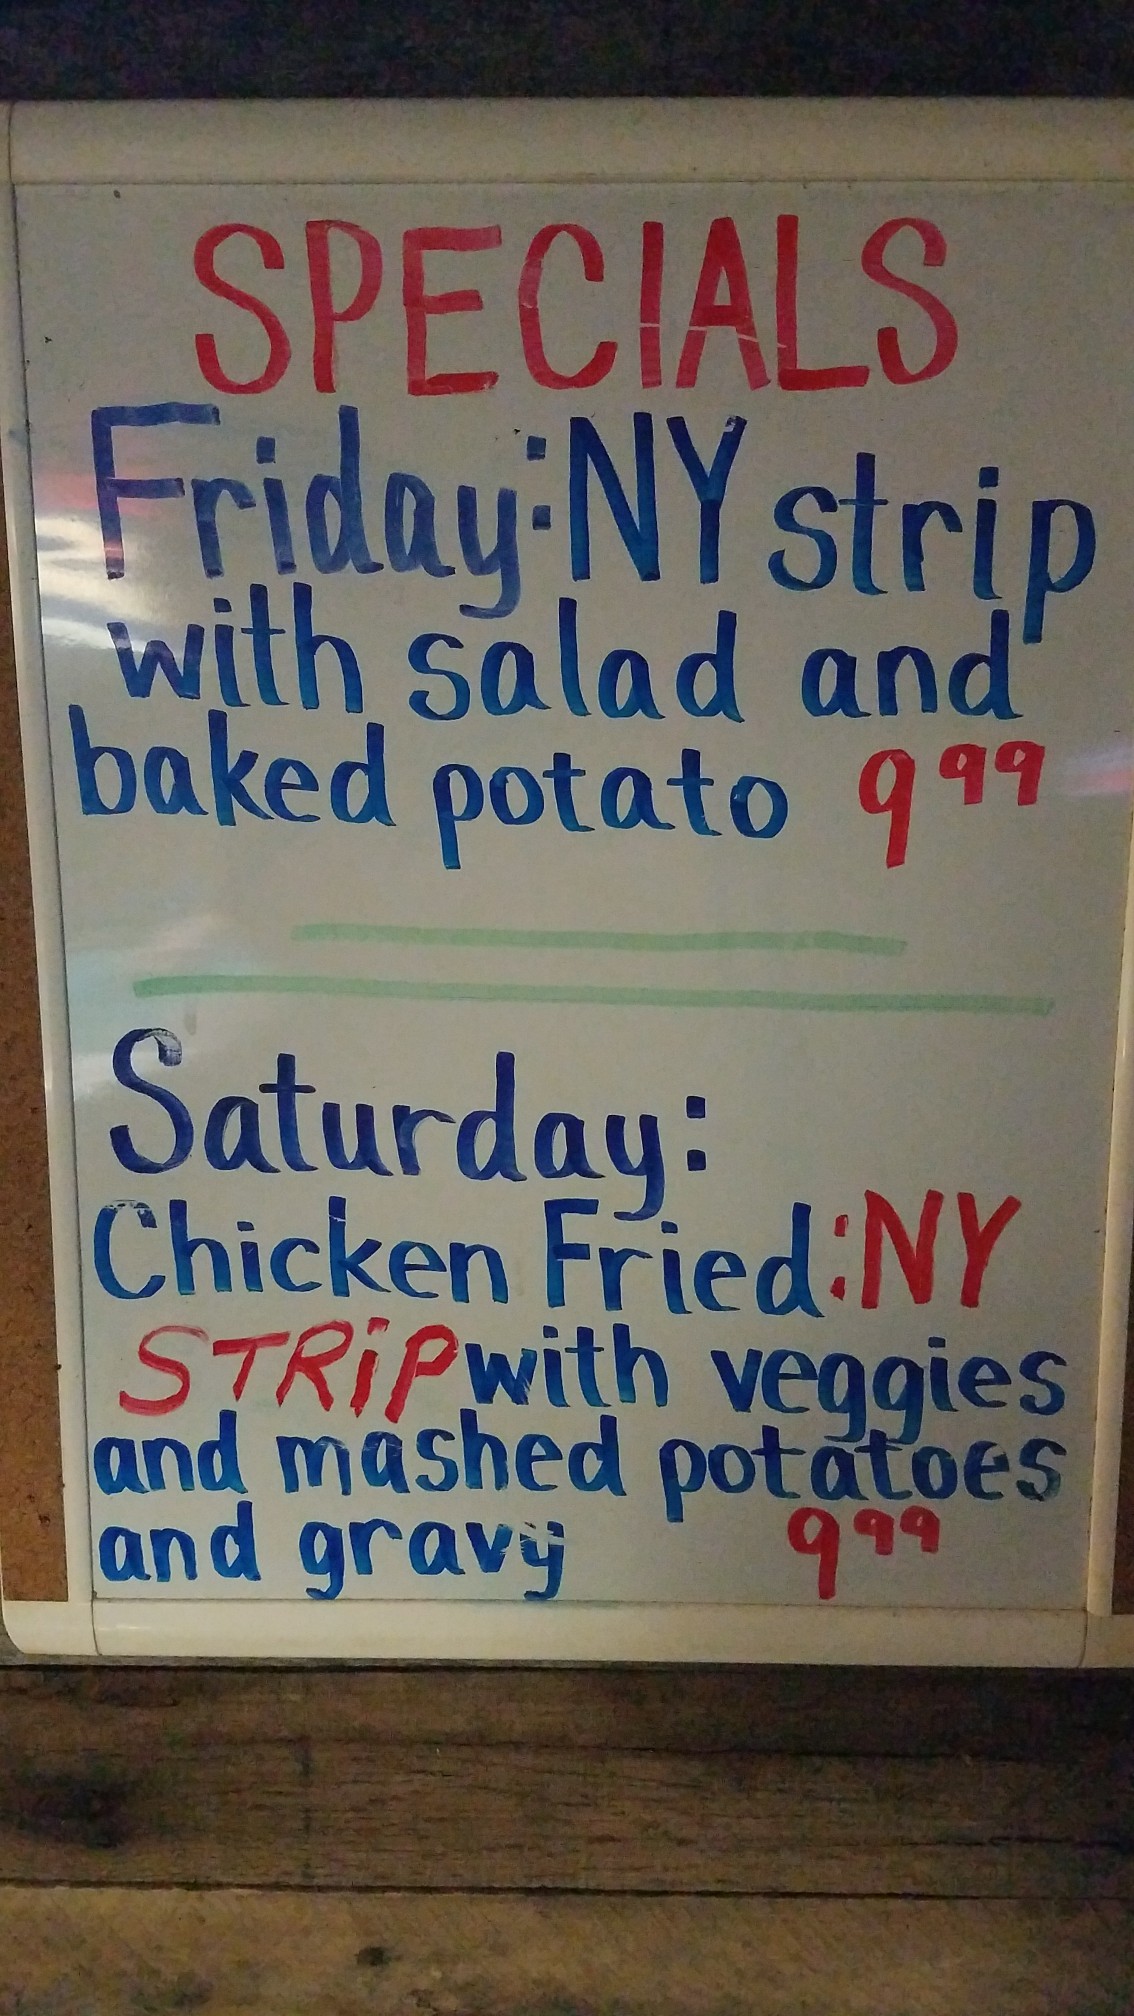 SPECIALS
Friday: NY strip
with salad and
baked potato 9 99
Saturday:
Chicken Fried: NY
STRiP with veggies
and mashed potatoes
and gravy 9 99